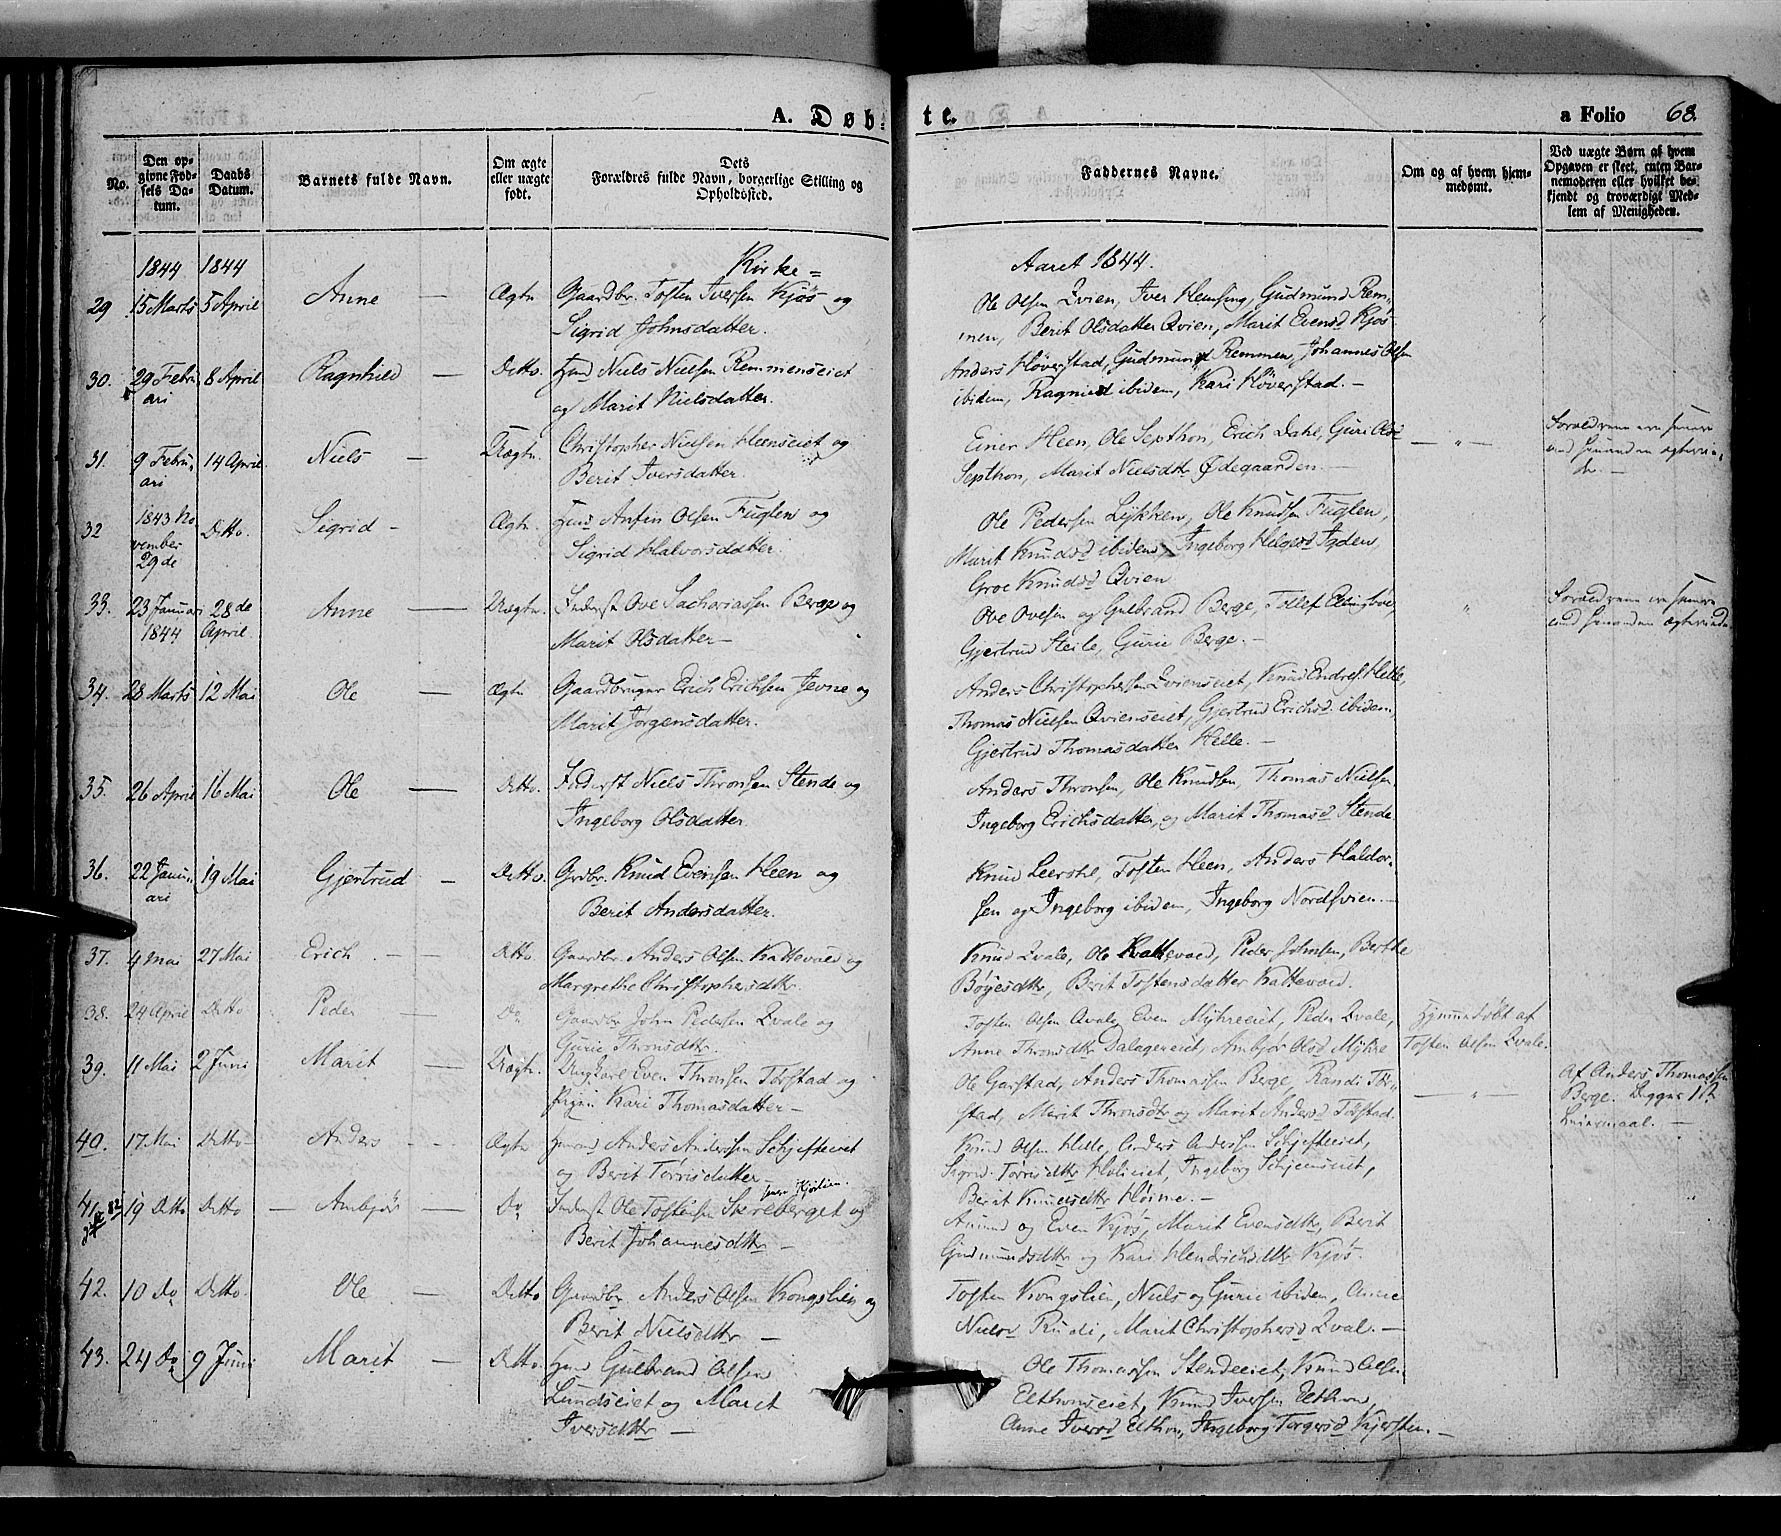 A. Døb- te. a Folio 68.
No.
Den op-
givne Fød-
sels Da-
tum.
Daabs
Datum.
Barnets fulde Navn.
Om ægte
eller uægte
født.
Dets
Forældres fulde Navn, borgerlige Stilling og
Opholdssted.
Faddernes Navne.
Om og af hvem hjem-
medømt.
Ved uægte Børn af hvem
Opgaven er skeet, enten Bar-
nemoderen eller hvilket be-
kjendt og troværdigt Med-
lem af Menigheden.
1844 1844 Kirke= Aaret 1844.
29 15 Marts 5 April Anne — Ægte Gaardbr. Tosten Iversen Kjøs og
Sigrid Johnsdatter.
Ole Olsen Qvien, Iver Hemsing, Gudmund Rem-
men, Berit Olsdatter Qvien, Marit Evensd Kjøs
30. 29 Febru 8 April Ragnhild — Ditto. Huusd Niels Nielsen Remmenseiet
ari og Marit Nielsdatter.
Anders Høverstad, Gudmund Remmen, Johannes Olsen
ibidem, Ragnild ibidem, Kari Høverstad. —
31. 9 Febru, 14 April. Niels — Uægte. Christopher Nielsen Heenseiet og
ari Berit Iversdatter.
Einer Heen, Ole Septhon, Erich Dahl, Guri Olsd — " —
Septhon, Marit Nielsdtr Ødegaarden. —
Forældrene ere
32 1843 No Ditto. Sigrid — Ægte. Huus Anfin Olsen Fuglen og
vember Sigrid Halvorsdatter
29de
Ole Pedersen Lykken, Ole Knudsen Fuglen,
Marit Knudsd ibidem, Ingeborg Helgesd Igden,
Groe Knudsd Qvien
33. 23 Januari 28de Anne — Uægte. Inderst Ove Sachariassen Berge og
1844 April Marit Olsdatter —
Ove Ovesen og Gulbrand Berge, Tollef "
Gjertrud Steile, Gurie Berge. —
Forældrene ere
34. 28 Marts 12 Mai Ole — Ægte Gaardbruger Erich Erichsen Jevne og
Marit Jørgensdatter.
Anders Christophersen Qvienseiet, Knud Endresen Helle,
Thomas Nielsen Qvienseiet, Gjertrud Erichsd ibidem,
Gjertrud Thomasdatter Helle. —
35. 26 April 16 Mai Ole — Ditto. Inderst Niels Thronsen Stende og
Ingeborg Olsdatter.
Anders Thronsen, Ole Knudsen, Thomas Nielsen
Ingeborg Erichsdatter, og Marit Thomasd Stende
36. 22 Janu, 19 Mai Gjertrud — Ditto. Grdbr. Knud Evensen Heen og
ari Berit Andersdatter.
Knud Leerhol, Tosten Heen, Anders Haldor-
sen og Ingeborg ibidem, Ingeborg Nordsvien. —
37. 4 Mai 27 Mai Erich — Ditto Gaardbr Anders Olsen Kattevold og
Margrethe Christophersdtr.
Knud Qvale, Ole Kattevold, Peder Johnsen, Berthe
Bøyesdtr, Berit Tostensdatter Kattevold.
38. 24 April Ditto Peder — Do Gaardbr John Pedersen Qvale og
Gurie Thronsdtr.
Tosten Olsen Qvale, Even Myhreeiet, Peder Qvale, Hjemmedøbt af
Anne Thronsdtr Dalageneiet, Ambjør Olsd Myhre Tosten Olsen Qvale.
39. 11 Mai 2 Juni Marit — Uægte. Ungkarl Even Thronsen Torstad og
Pigen Kari Thomasdatter —
Ole Garstad, Anders Thomassen Berge, Randi Tor-
stad, Marit Thronsdtr og Marit Andersd Torstad. — " —
Af Anders Thomassen
Berge. Begges 1ste
Leiermaal. —
40. 17 Mai Ditto Anders — Ægte Huusd Anders Anderssen Schjefteeiet
og Berit Torrisdatter —
Knud Olsen Helle, Anders Anderssen Schjefteeiet,
Sigrid Torrisdtr Holieiet, Ingeborg Schjemseiet,
Berit Knudsdtr Hørne. —
41. 19 Ditto Ditto — Ambjør — Do Inderst Ole Tostensen Skreberget og
Berit Johannesdtr —
Amund og Even Kjøs, Marit Evensdtr, Berit
Gudmundsdtr og Kari Hendrichsdtr Kjøs.
42. 10 do Ditto. Ole — Ditto Gaardbr Anders Olsen Kongslien og
Berit Nielsdtr —
Tosten Kongslien, Niels og Gurie ibidem, Anne
Nielsd Rudi, Marit Christophersd Qval. —
43. 24 do 9 Juni Marit — Ditto. Huusd Gulbrand Olsen
Lundseiet og Marit
Iversdtr —
Ole Thomassen Stendeeiet, Knud Olsen
Elthonseiet, Knud Iversen Elthon,
Anne Iversd Elthon, Ingeborg Torgersd Kjersten. —